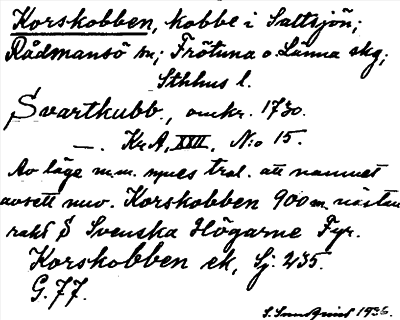 Korskobben, kobbe i Saltsjön;
Rådmansö sn; Frötuna o. Länna skg;
Sthlms l.
Svartkubb, omkr. 1730.
—. Kr.A, XXII, N:o 15.
Av läge m.m. synes trol. att namnet
avsett nuv. Korskobben 900 m. nästan
rakt S Svenska Högarne Fyr.
Korskobben ek, Sj. 235.
G.77.
1936.